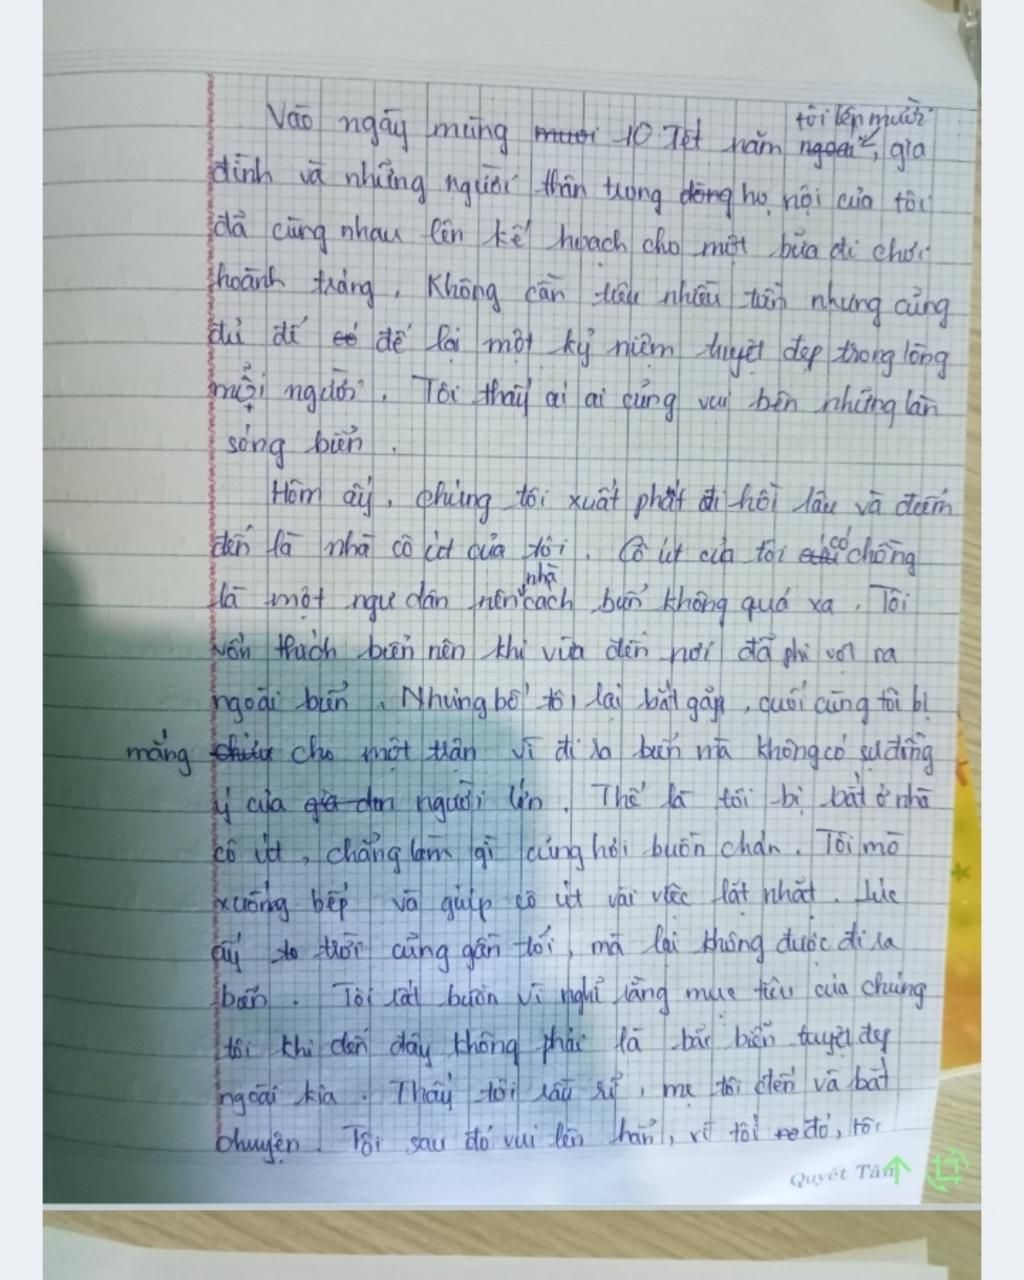 tôi lên mười
Vào ngày mùng mười 10 Tết năm ngoái, gia
đình và những người thân trong dòng họ nội của tôi
đã cùng nhau lên kế hoạch cho một bữa đi chơi
hoành tráng. Không cần tiêu nhiều tiền nhưng cũng
đủ để có để lại một kỷ niệm tuyệt đẹp trong lòng
mỗi người. Tôi thấy ai ai cũng vui bên những làn
sóng biển.
Hôm ấy, chúng tôi xuất phát đi hồi lâu và điểm
đến là nhà cô út của tôi. Cô út của tôi có chồng
là một ngư dân nên nhà cách biển không quá xa. Tôi
vốn thích biển nên khi vừa đến nơi đã phi vọt ra
ngoài biển. Nhưng bố tôi lại bắt gặp, cuối cùng tôi bị
mắng cho một trận vì đi ra biển mà không có sự đồng
ý của gia đìn người lớn. Thế là tôi bị bắt ở nhà
cô út, chẳng làm gì cũng hơi buồn chán. Tôi mò
xuống bếp và giúp cô út vài việc lặt nhặt. Lúc
ấy to trời cũng gần tối, mà lại không được đi ra
biển. Tôi rất buồn vì nghĩ rằng mục tiêu của chúng
tôi khi đến đây không phải là bãi biển tuyệt đẹp
ngoài kia. Thấy tôi rầu rĩ, mẹ tôi đến và bắt
chuyện. Tôi sau đó vui lên hẳn, vì tối đó, tôi
Quyết Tâm